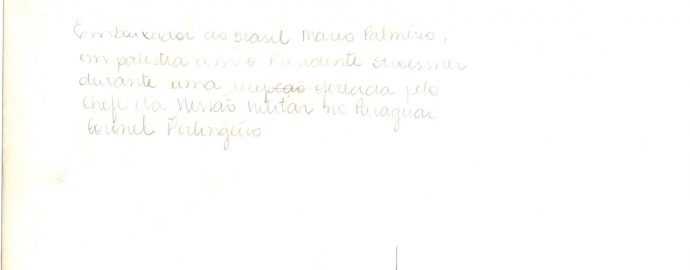 Embaixador do Brasil Mario Palmério,
em palestra com o Presidente Stroessner
durante uma recepção oferecida pelo
Chefe da Missão Militar no Paraguai
Coronel